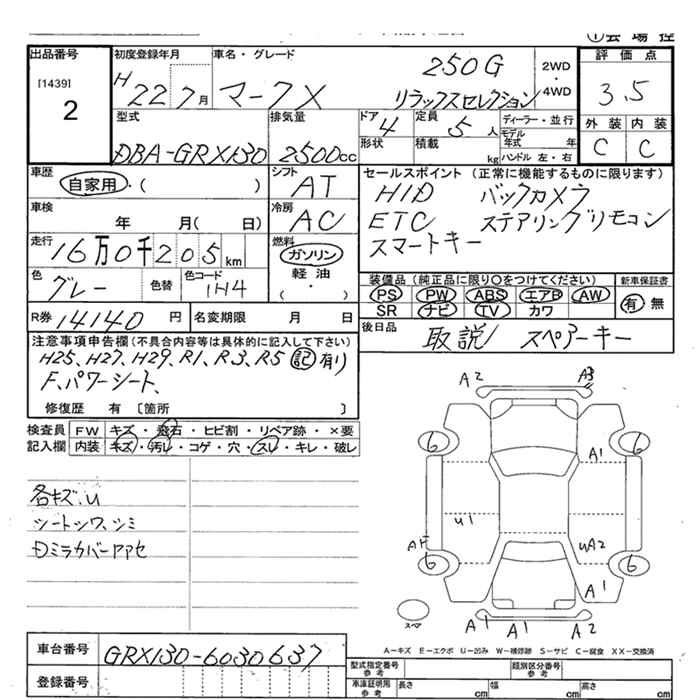 ①会場控
出品番号
[1439]
2
初度登録年月
H22 7月
車名・グレード
マークX
250G
リラックスセレクション
2WD
・
4WD
評価点
3.5
外装 内装
C C
型式
DBA-GRX130
排気量
2500cc
ドア
4
形状
定員
5人
積載
kg
ディーラー・並行
モデル年式 年
ハンドル 左・右
車歴
自家用・( )
シフト
AT
車検
年 月( 日)
冷房
AC
走行
16万0千205km
燃料
ガソリン
軽油
( ・ )
色
グレー
色替
色コード
1H4
R券 14140円
名変期限 月 日
セールスポイント (正常に機能するものに限ります)
HID バックカメラ
ETC ステアリングリモコン
スマートキー
装備品(純正品に限り○をつけてください)
PS PW ABS エアB AW
SR ナビ TV カワ
新車保証書
有 無
後日品
取説 スペアーキー
注意事項申告欄(不具合内容等は具体的に記入して下さい)
H25、H27、H29、R1、R3、R5 記有り
F、パワーシート、
修復歴 有 [箇所 ]
検査員 FW キズ・飛石・ヒビ割・リペア跡・×要
記入欄 内装 キズ・汚レ・コゲ・穴・スレ・キレ・破レ
各キズ.U
シートシワ、シミ
Dミラカバーアアセ
A2 A3
6 6
A1
U1
AF UA2
6 6
A1
スペア
A1 A1 A2
A-キズ E-エクボ U-凹ミ W-補修跡 S-サビ C-腐食 XX-交換済
車台番号
GRX130-6030637
登録番号
型式指定番号
参考
類別区分番号
参考
車庫証明用
参考
長さ cm
幅 cm
高さ cm